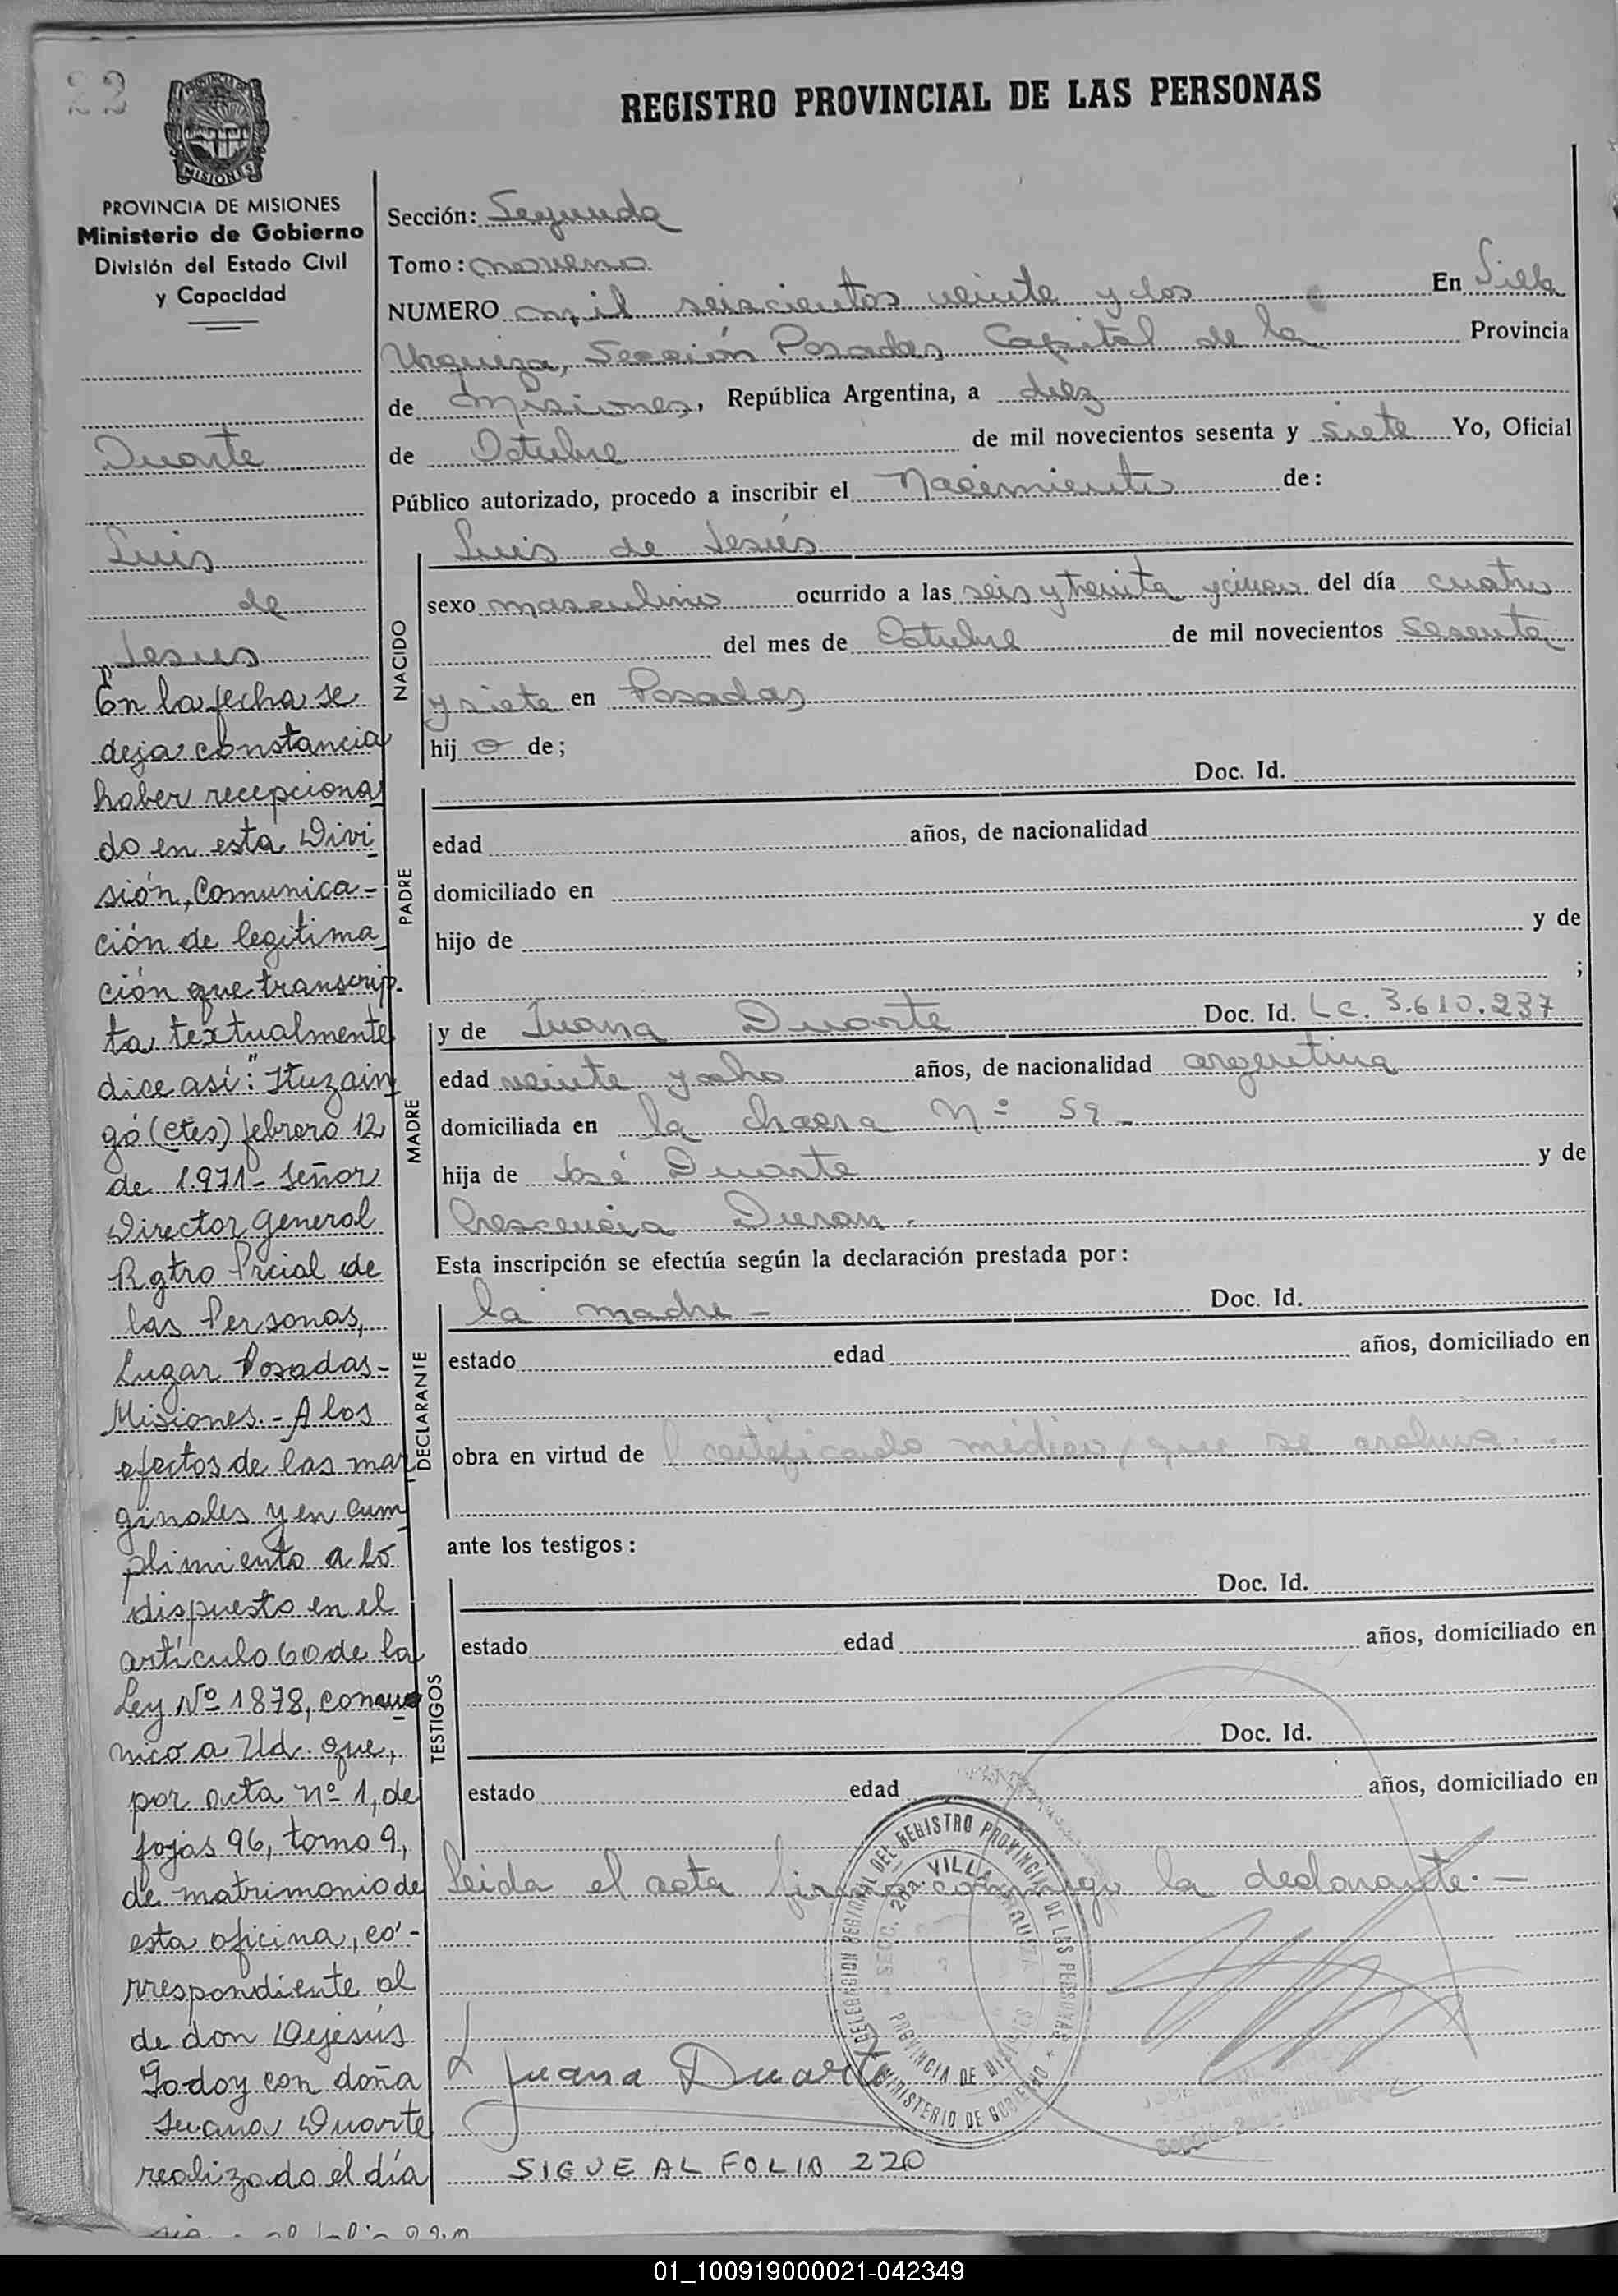 22
PROVINCIA DE
MISIONES
REGISTRO PROVINCIAL DE LAS PERSONAS
PROVINCIA DE MISIONES
Ministerio de Gobierno
División del Estado Civil
y Capacidad
Duarte
Luis
de
Jesus
En la fecha se
deja constancia
haber recepciona
do en esta Divi
sión, Comunica-
ción de legitima
ción que transcrip-
ta textualmente
dice así: "Ituzain
gó (Ctes) febrero 12
de 1.971- Señor
Director General
Rgtro Prcial de
las Personas,
Lugar Posadas-
Misiones.- A los
efectos de las mar
ginales y en cum
plimiento a lo
dispuesto en el
artículo 60 de la
Ley Nº 1878, comu
nico a Ud. que,
por acta nº 1, de
fojas 96, tomo 9,
de matrimonio de
esta oficina, co-
rrespondiente al
de don Dejesús
Godoy con doña
Juana Duarte
realizado el día
Sección: Segunda
Tomo: noveno
NUMERO mil seiscientos veinte y dos En Villa
Urquiza, Sección Posadas, Capital de la Provincia
de Misiones, República Argentina, a diez
de Octubre de mil novecientos sesenta y siete Yo, Oficial
Público autorizado, procedo a inscribir el Nacimiento de:
Luis de Jesús
NACIDO
sexo masculino ocurrido a las seis y treinta y cinco del día cuatro
del mes de Octubre de mil novecientos Sesenta
y siete en Posadas
hijo de;
Doc. Id.
PADRE
edad años, de nacionalidad
domiciliado en
hijo de y de
;
MADRE
y de Juana Duarte Doc. Id. Lc. 3.610.237
edad veinte y ocho años, de nacionalidad argentina
domiciliada en la chacra Nº 59-
hija de José Duarte y de
Crescencia Duran.
Esta inscripción se efectúa según la declaración prestada por:
DECLARANTE
la madre- Doc. Id.
estado edad años, domiciliado en
obra en virtud de certificado médico, que se archiva.-
ante los testigos:
TESTIGOS
Doc. Id.
estado edad años, domiciliado en
Doc. Id.
estado edad años, domiciliado en
Leida el acta firma conmigo la declarante.-
DELEGACION REGIONAL DEL REGISTRO PROVINCIAL DE LAS PERSONAS * MINISTERIO DE GOBIERNO
SECC. 2da. VILLA URQUIZA
PROVINCIA DE MISIONES
Juana Duarte
SIGUE AL FOLIO 220
01_100919000021-042349